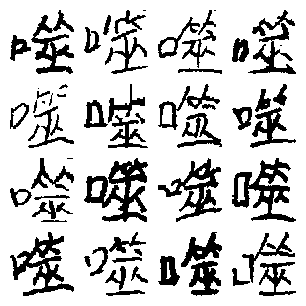 噬噬噬噬
噬噬噬噬
噬噬噬噬
噬噬噬噬